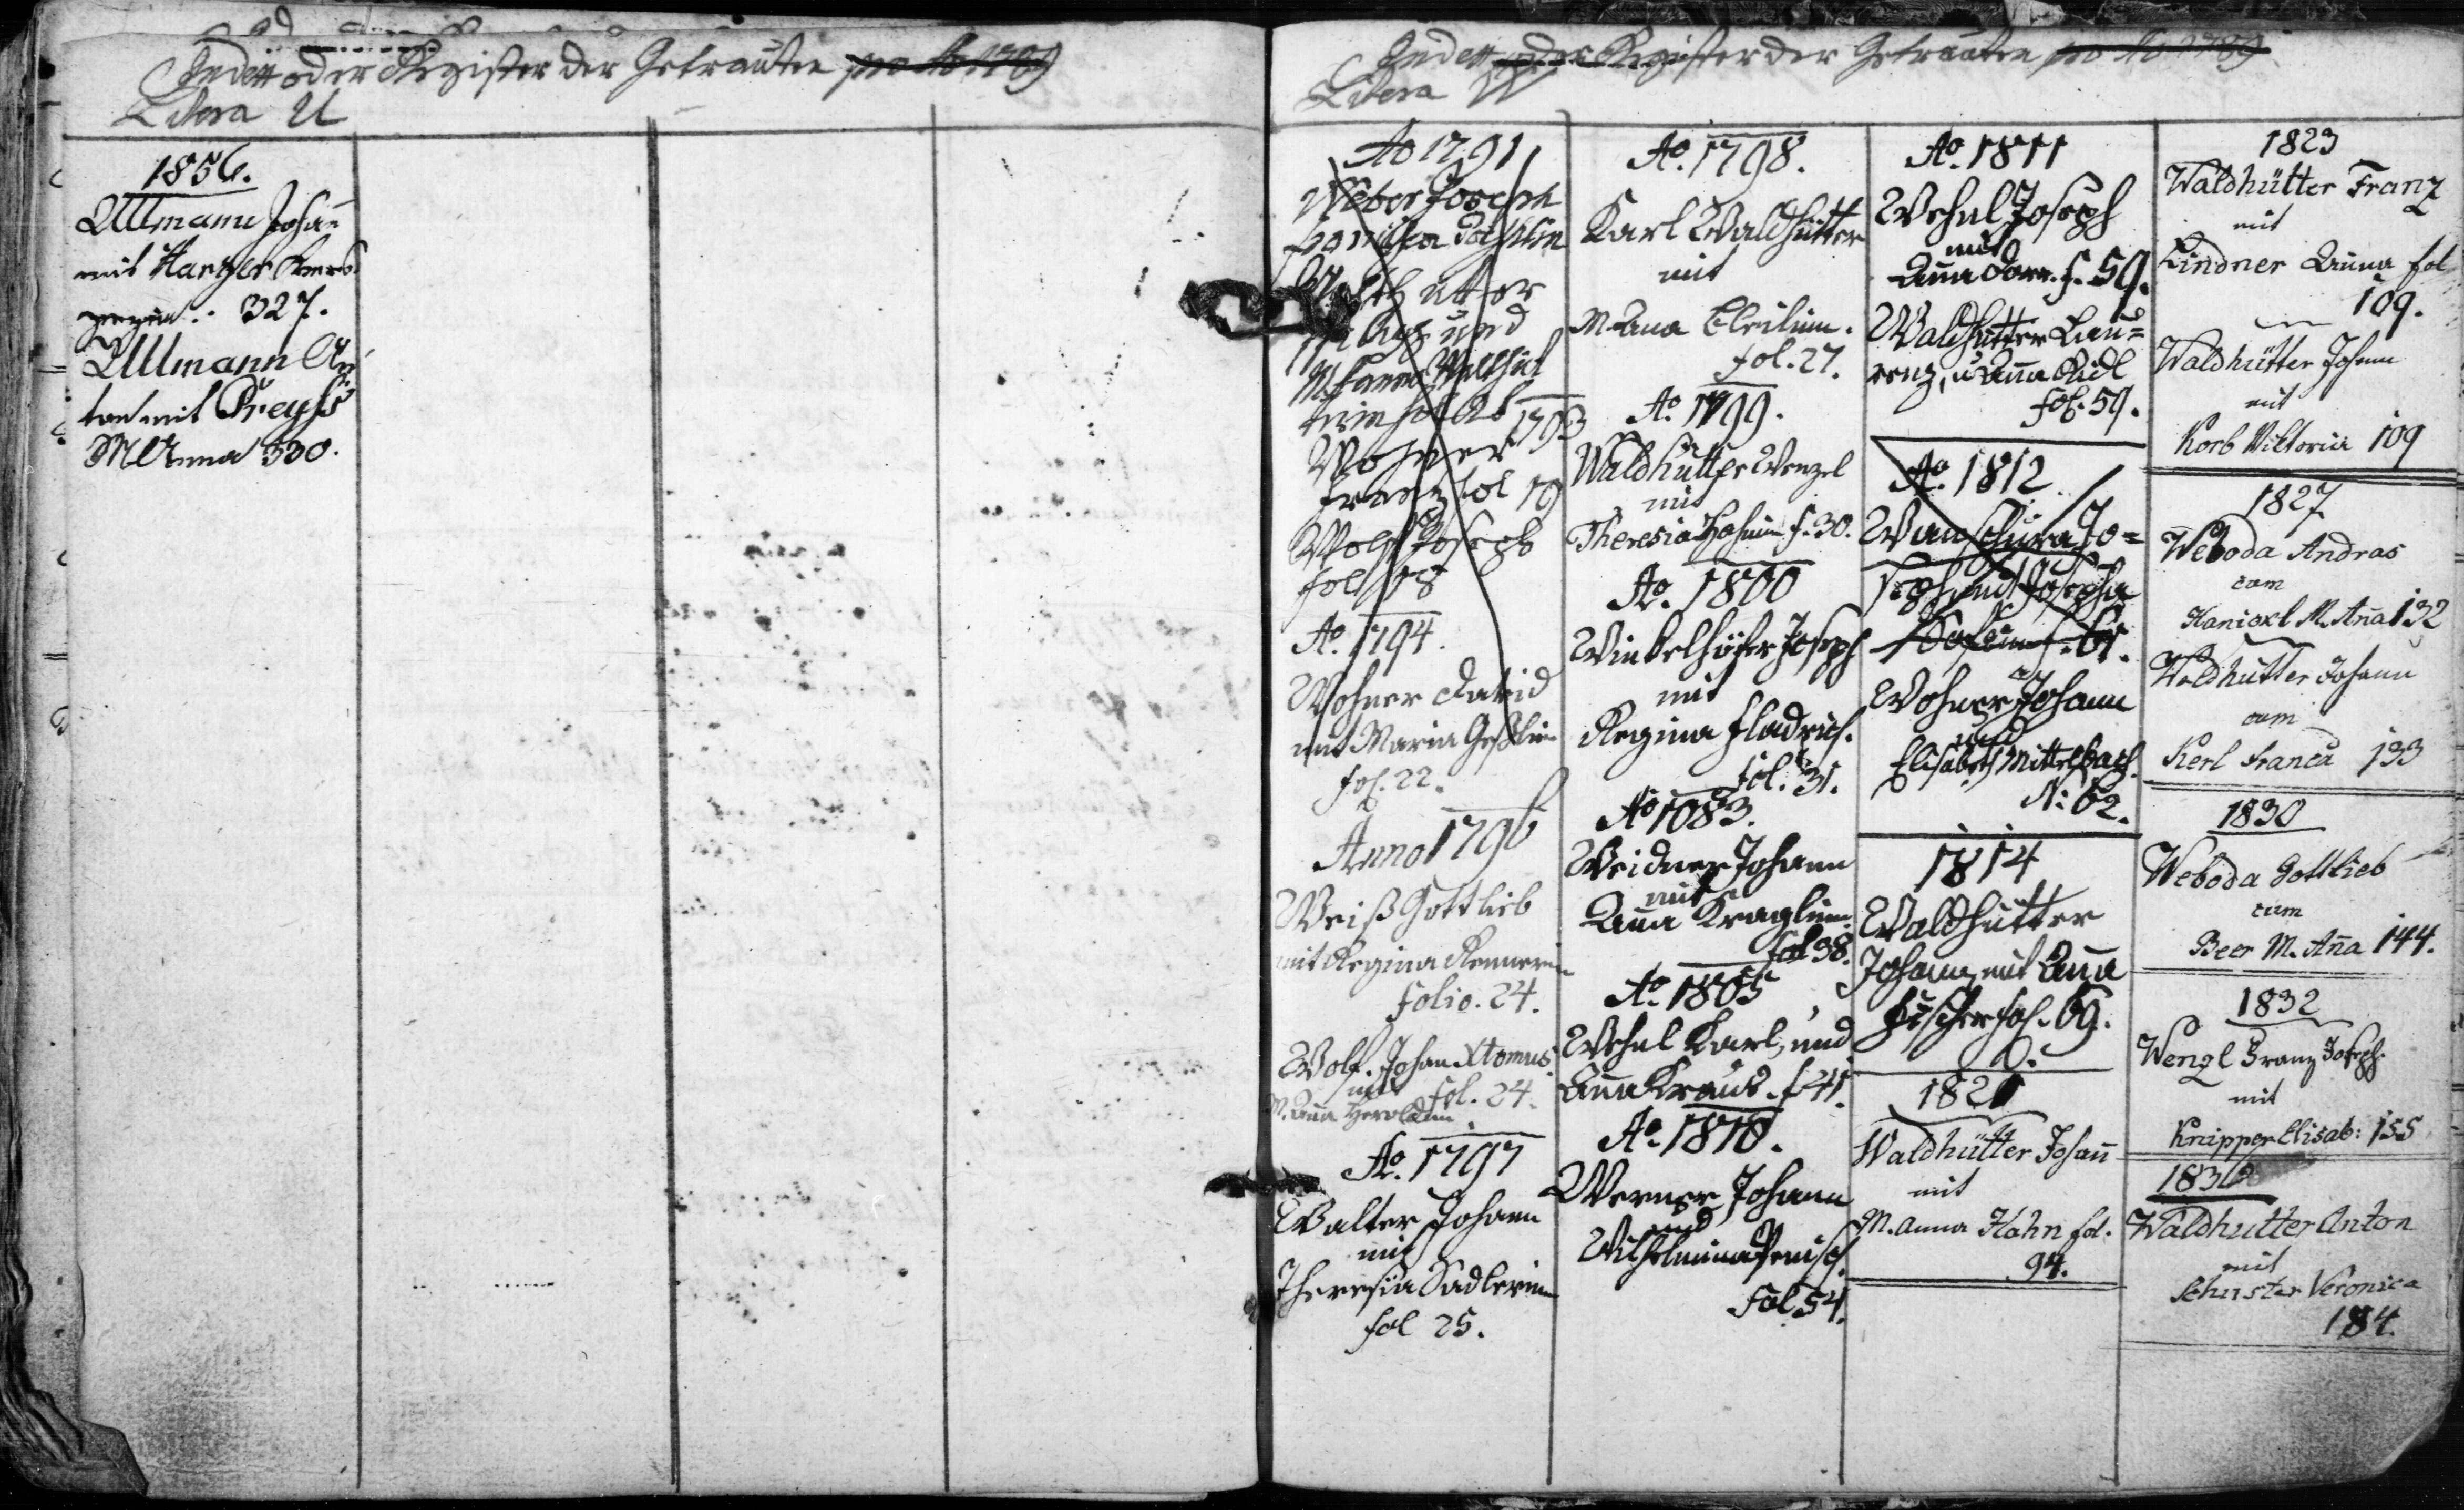 Index oder Register der Getrauten pro Ao 1789
Litera U
1856.
Ullmann Johan
mit Hanzer
327.
Ullmann An
ton mit Preyss
M Anna 330.
Index oder Register der Getrauten pro Ao 1789
Litera W
Ao 1791
Weber Joseph
und
M
1793
Wohner
Franz fol 19
Wolf Joseph
fol 18
Ao. 1794.
Wohner David
mit Maria
fol. 22.
Anno 1796
Weiß Gottlieb
mit Regina Rennerin
folio. 24.
Wolf. Johan
mit fol. 24.
M. Anna Heroldin
Ao. 1797
Walter Johann
mit
Theresia Sadlerin
fol 25.
Ao. 1798.
Karl Waldhütter
mit
M. Anna
fol. 27.
Ao. 1799.
Waldhütter Wenzel
mit
Theresia f. 30.
Ao. 1800
Winkelhöfer Joseph
mit
Regina Fladrich.
fol. 31.
Ao 1083.
Weidner Johann
mit
Anna Kraglin
fol 38.
Ao. 1805
Wehnl Karl, und
Anna Kraus. f. 41.
Ao. 1810.
Werner Johann
und
Wilhelmina
Fol 54.
Ao. 1811
Wehnl Joseph
mit
Anna f. 59.
Waldhütter Lau=
renz, u. Anna Riedl
fol. 59.
Ao. 1812
Wanschura Jo=
seph, und Josepha
f. 61.
Wohner Johann
und
Elisabeth Mittelbach.
N: 62.
1814
Waldhütter
Johann mit Anna
Fischer fol. 69.
1821
Waldhütter Johañ
mit
M. Anna Hahn fol.
94.
1823
Waldhütter Franz
mit
Lindner Anna fol
109.
Waldhütter Johann
mit
Korb Viktoria 109
1827
Weboda Andras
cum
M. Aña 132
Waldhütter Johann
cum
Kerl Franca 133
1830
Weboda Gottlieb
cum
Beer M. Aña 144.
1832
Wenzl Franz Joseph
mit
Knipper Elisab: 155
1836
Waldhutter Anton
mit
Schuster Veronica
184.